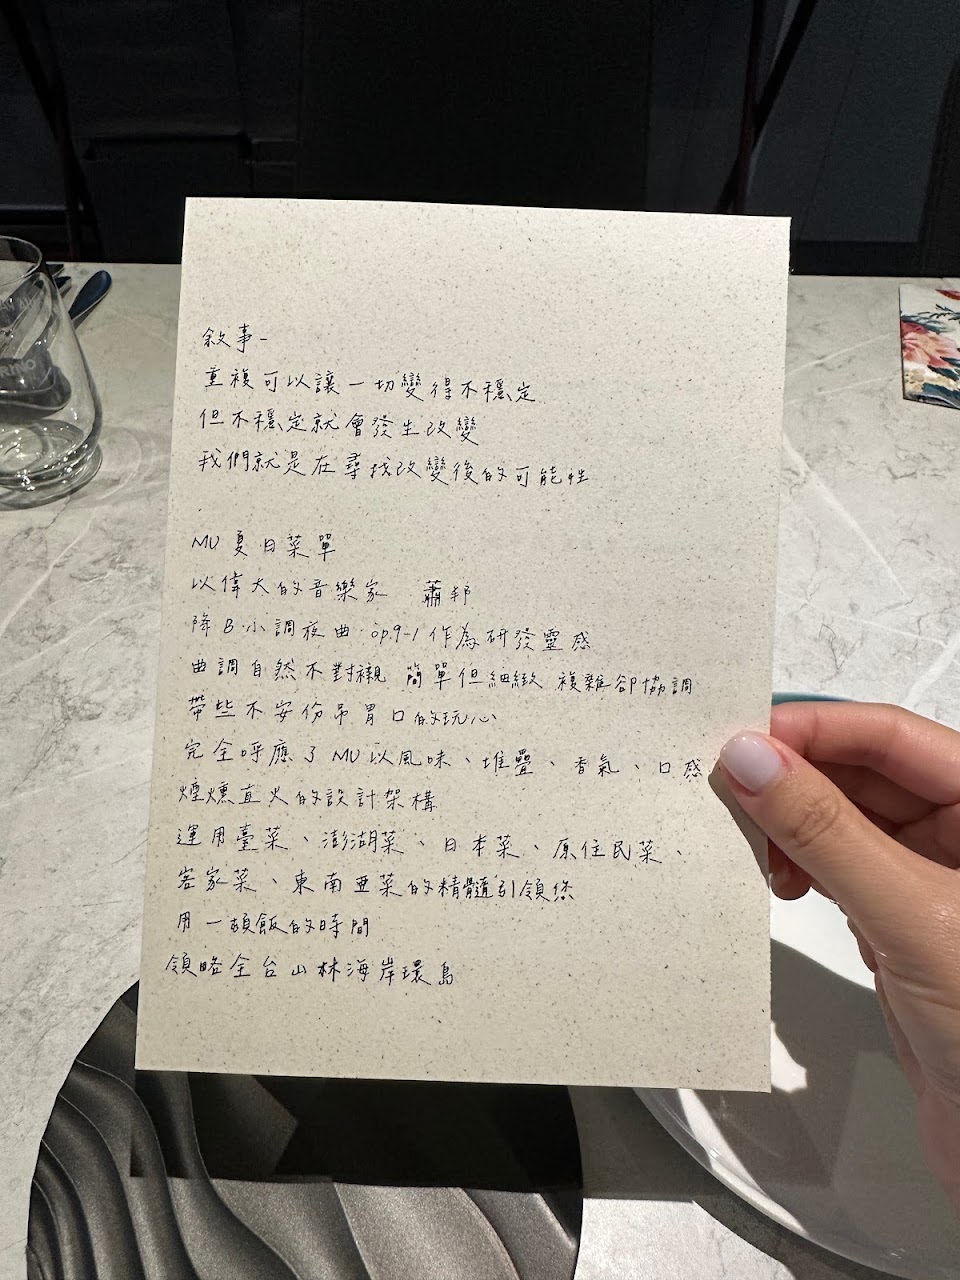 敘事-
重複可以讓一切變得不穩定
但不穩定就會發生改變
我們就是在尋找改變後的可能性
MU 夏日菜單
以偉大的音樂家 蕭邦
降B小調夜曲 op.9-1 作為研發靈感
曲調自然不對襯 簡單但細緻 複雜卻協調
帶些不安份吊胃口的玩心
完全呼應了MU以風味、堆疊、香氣、口感
煙燻直火的設計架構
運用臺菜、澎湖菜、日本菜、原住民菜、
客家菜、東南亞菜的精髓引領您
用一頓飯的時間
領略全台山林海岸環島